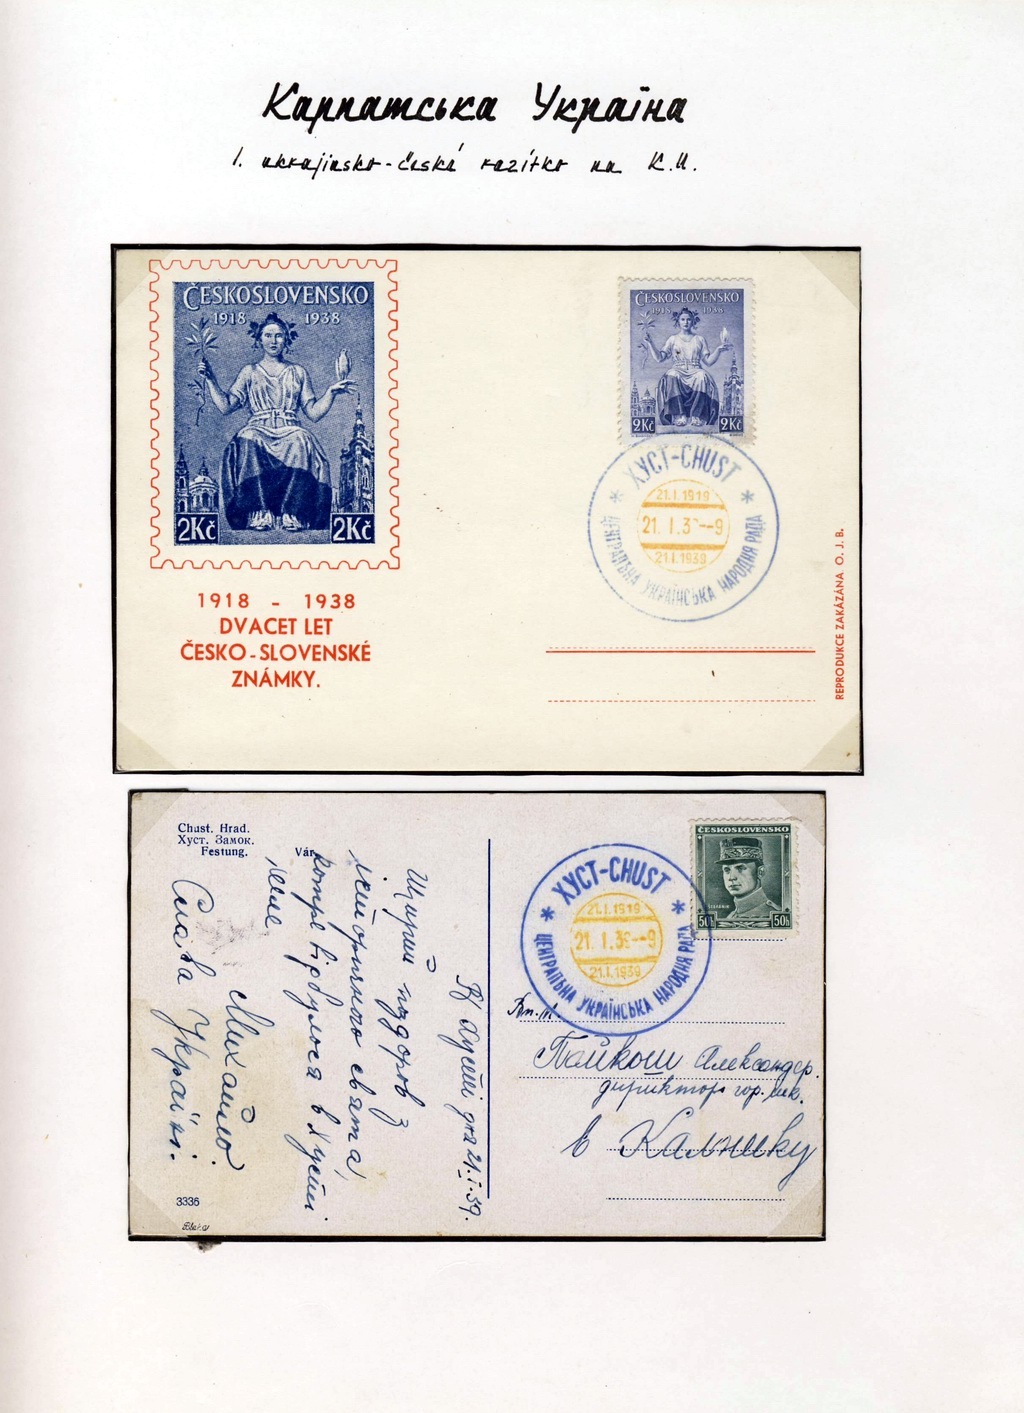 Карпатська Україна
1. ukrajinsko-česká razítko na K.U.
ČESKOSLOVENSKO
1918 1938
2Kč 2Kč
1918 - 1938
DVACET LET
ČESKO-SLOVENSKÉ
ZNÁMKY.
ČESKOSLOVENSKO
1918 1938
2Kč 2Kč
ХУСТ-CHUST
21.I.1919
21.I.3--9
21.I.1939
ЦЕНТРАЛЬНА УКРАЇНСЬКА НАРОДНЯ РАДА
REPRODUKCE ZAKÁZÁNA O. J. B.
Chust. Hrad.
Хуст. Замок.
Festung. Vár
В Хусті дня 21.I.39.
Щирий поздоров з
історичного свята,
котре відбулося в Хусті.
Михайло
Слава Україні.
3336
ČESKOSLOVENSKO
ŠTEFÁNIK
50h 50h
ХУСТ-CHUST
21.I.1919
21.I.39--9
21.I.1939
ЦЕНТРАЛЬНА УКРАЇНСЬКА НАРОДНЯ РАДА
Вп. п.
Пайкош Александер.
директор гор. шк.
в Кальнику